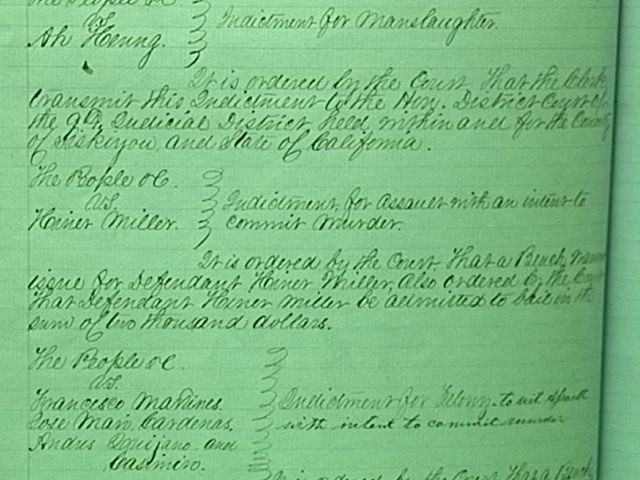 The People &c.
vs.
Ah Heung.
Indictment for Manslaughter.
It is ordered by the Court That the Clerk
transmit this Indictment to the Hon. District Court of
the 9th Judicial District held within and for the County
of Siskiyou and State of California.
The People &c.
vs.
Hiner Miller.
Indictment for Assault with an intent to
commit Murder.
It is ordered by the Court That a Bench
issue for Defendant Hiner Miller, Also ordered by the Court
that Defendant Hiner Miller be admitted to bail in the
sum of two thousand dollars.
The People &c.
vs.
Francisco Martines.
Jose Mar. Cardenas.
Andres Quijano and
Casimiro.
Indictment for Felony to wit
with intent to commit murder
It is ordered by the Court That a Bench